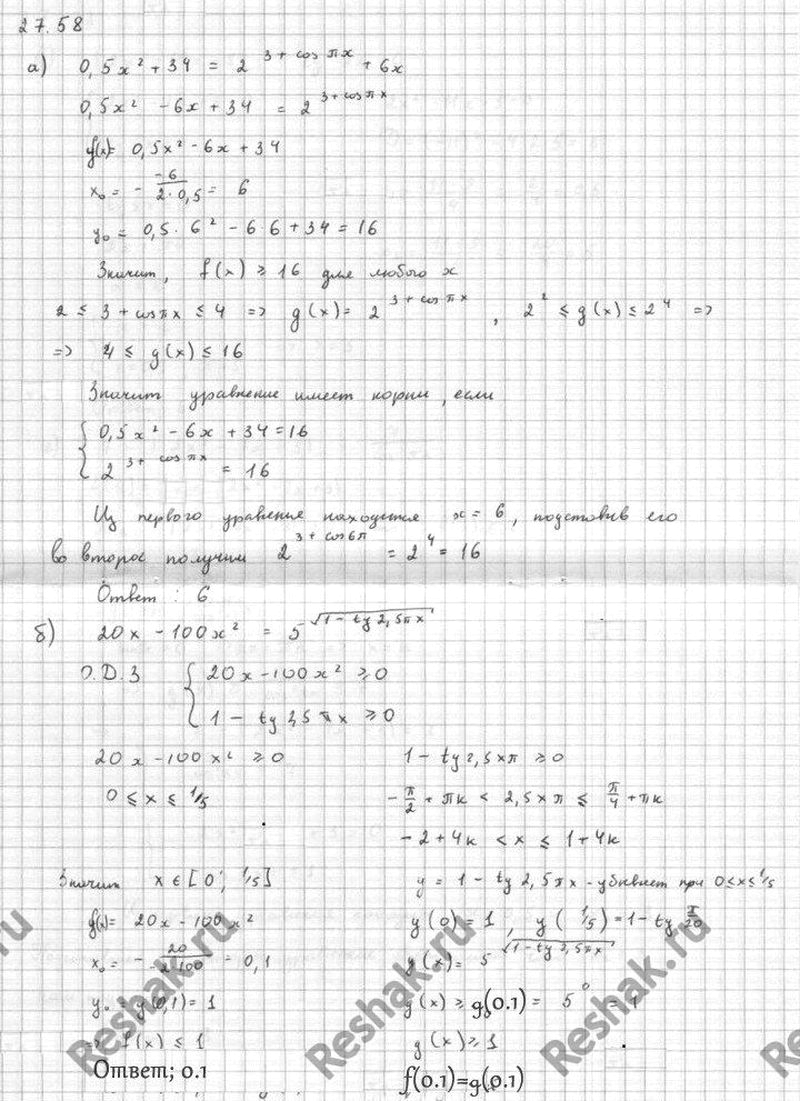 27.58
а) 0,5x² + 34 = 2^(3 + cos πx) + 6x
0,5x² - 6x + 34 = 2^(3 + cos πx)
f(x) = 0,5x² - 6x + 34
x₀ = - -6/(2·0,5) = 6
y₀ = 0,5·6² - 6·6 + 34 = 16
Значит, f(x) ≥ 16 для любого x
2 ≤ 3 + cos πx ≤ 4 => g(x) = 2^(3 + cos πx), 2² ≤ g(x) ≤ 2⁴ =>
=> 4 ≤ g(x) ≤ 16
Значит уравнение имеет корни, если
{ 0,5x² - 6x + 34 = 16
2^(3 + cos πx) = 16
Из первого уравнения находится x = 6, подставив его
во второе получим 2^(3 + cos 6π) = 2⁴ = 16
Ответ: 6
б) 20x - 100x² = 5^√(1 - tg 2,5πx)
О.Д.З { 20x - 100x² ≥ 0
1 - tg 2,5πx ≥ 0
20x - 100x² ≥ 0 1 - tg 2,5xπ ≥ 0
0 ≤ x ≤ 1/5 -π/2 + πк < 2,5xπ ≤ π/4 + πк
-2 + 4к < x ≤ 1 + 4к
Значит x ∈ [0; 1/5] y = 1 - tg 2,5πx - убывает при 0≤x≤1/5
f(x) = 20x - 100x² y(0) = 1, y(1/5) = 1 - tg π/20
x₀ = - 20/(-2·100) = 0,1 g(x) = 5^√(1 - tg 2,5πx)
y₀ = y(0,1) = 1 g(x) ≥ g(0.1) = 5⁰ = 1
=> f(x) ≤ 1 g(x) ≥ 1
Ответ; 0.1 f(0.1)=g(0.1)
Reshak.ru
Reshak.ru
Reshak.ru